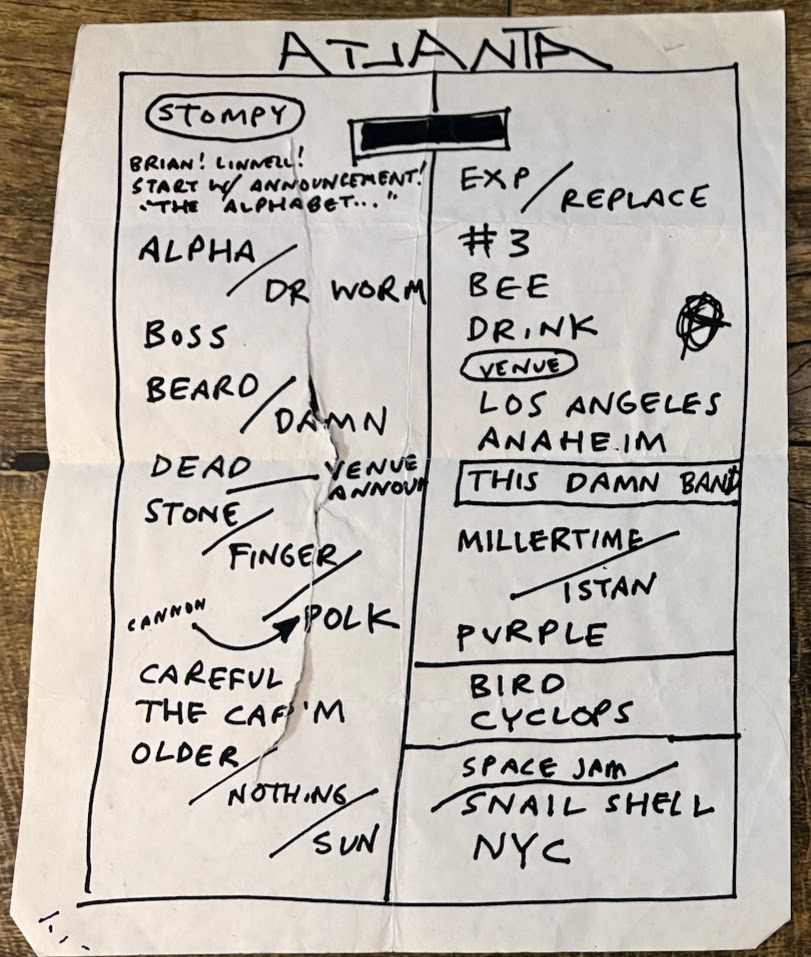 ATLANTA
STOMPY
BRIAN! LINNELL!
START W/ ANNOUNCEMENT!
"THE ALPHABET..."
ALPHA /
DR WORM
BOSS
BEARD /
DAMN
DEAD
VENUE
ANNOUN
STONE /
FINGER /
CANNON
POLK
CAREFUL
THE CAP'M
OLDER /
NOTHING /
SUN
EXP / REPLACE
#3
BEE
DRINK
VENUE
LOS ANGELES
ANAHEIM
THIS DAMN BAND
MILLERTIME /
ISTAN
PURPLE
BIRD
CYCLOPS
SPACE JAM
SNAIL SHELL
NYC